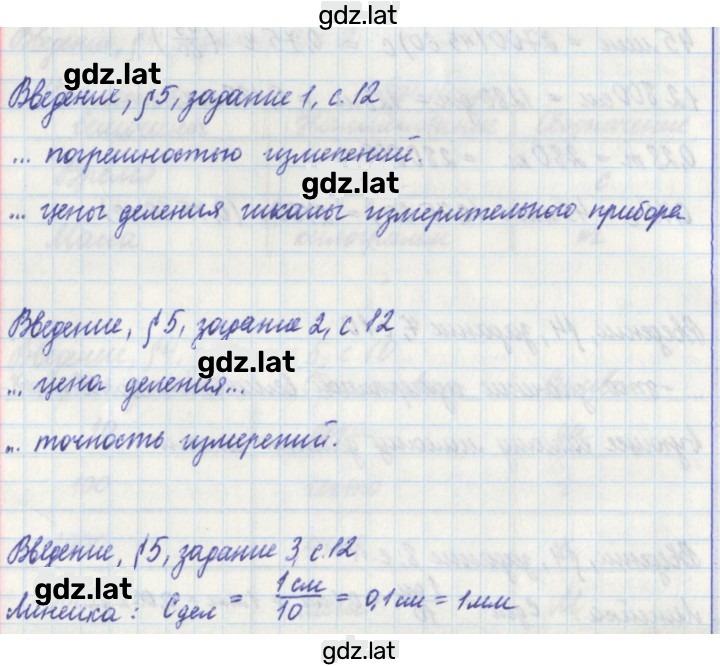 gdz.lat
gdz.lat
Введение, §5, задание 1, с.12
... погрешностью измерений.
gdz.lat
... цены деления шкалы измерительного прибора
Введение, §5, задание 2, с.12
gdz.lat
... цена деления...
... точность измерений.
Введение, §5, задание 3, с.12
gdz.lat
Линейка: Cдел = 1 см / 10 = 0,1 см = 1 мм
gdz.lat